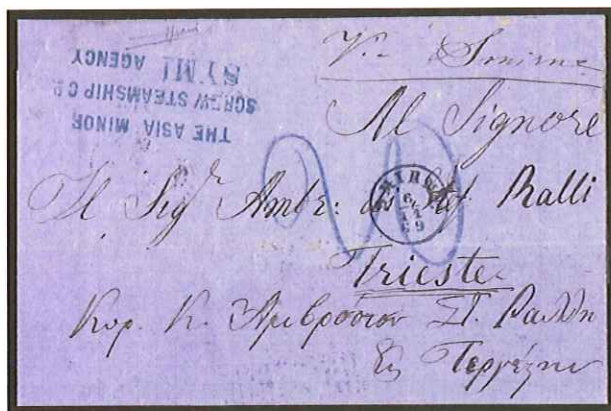 THE ASIA MINOR
SCREW STEAMSHIP Co
SYMI AGENCY
Via Smirne
Al Signore
Il Sigr Ambr: di Ralli
Trieste
Κυρ. Κ. Αμβρόσιον Στ. Ράλλη
Εις Τεργέστην